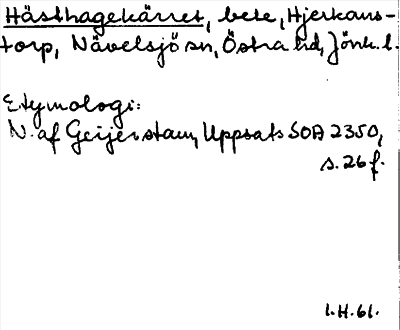 Hästhagekärret, bete, Hjerkans-
torp, Nävelsjö sn, Östra hd, Jönk. l.
Etymologi:
N. af Geijerstam, Uppsats SOA 2350,
s. 26 f.
I.H. 61.